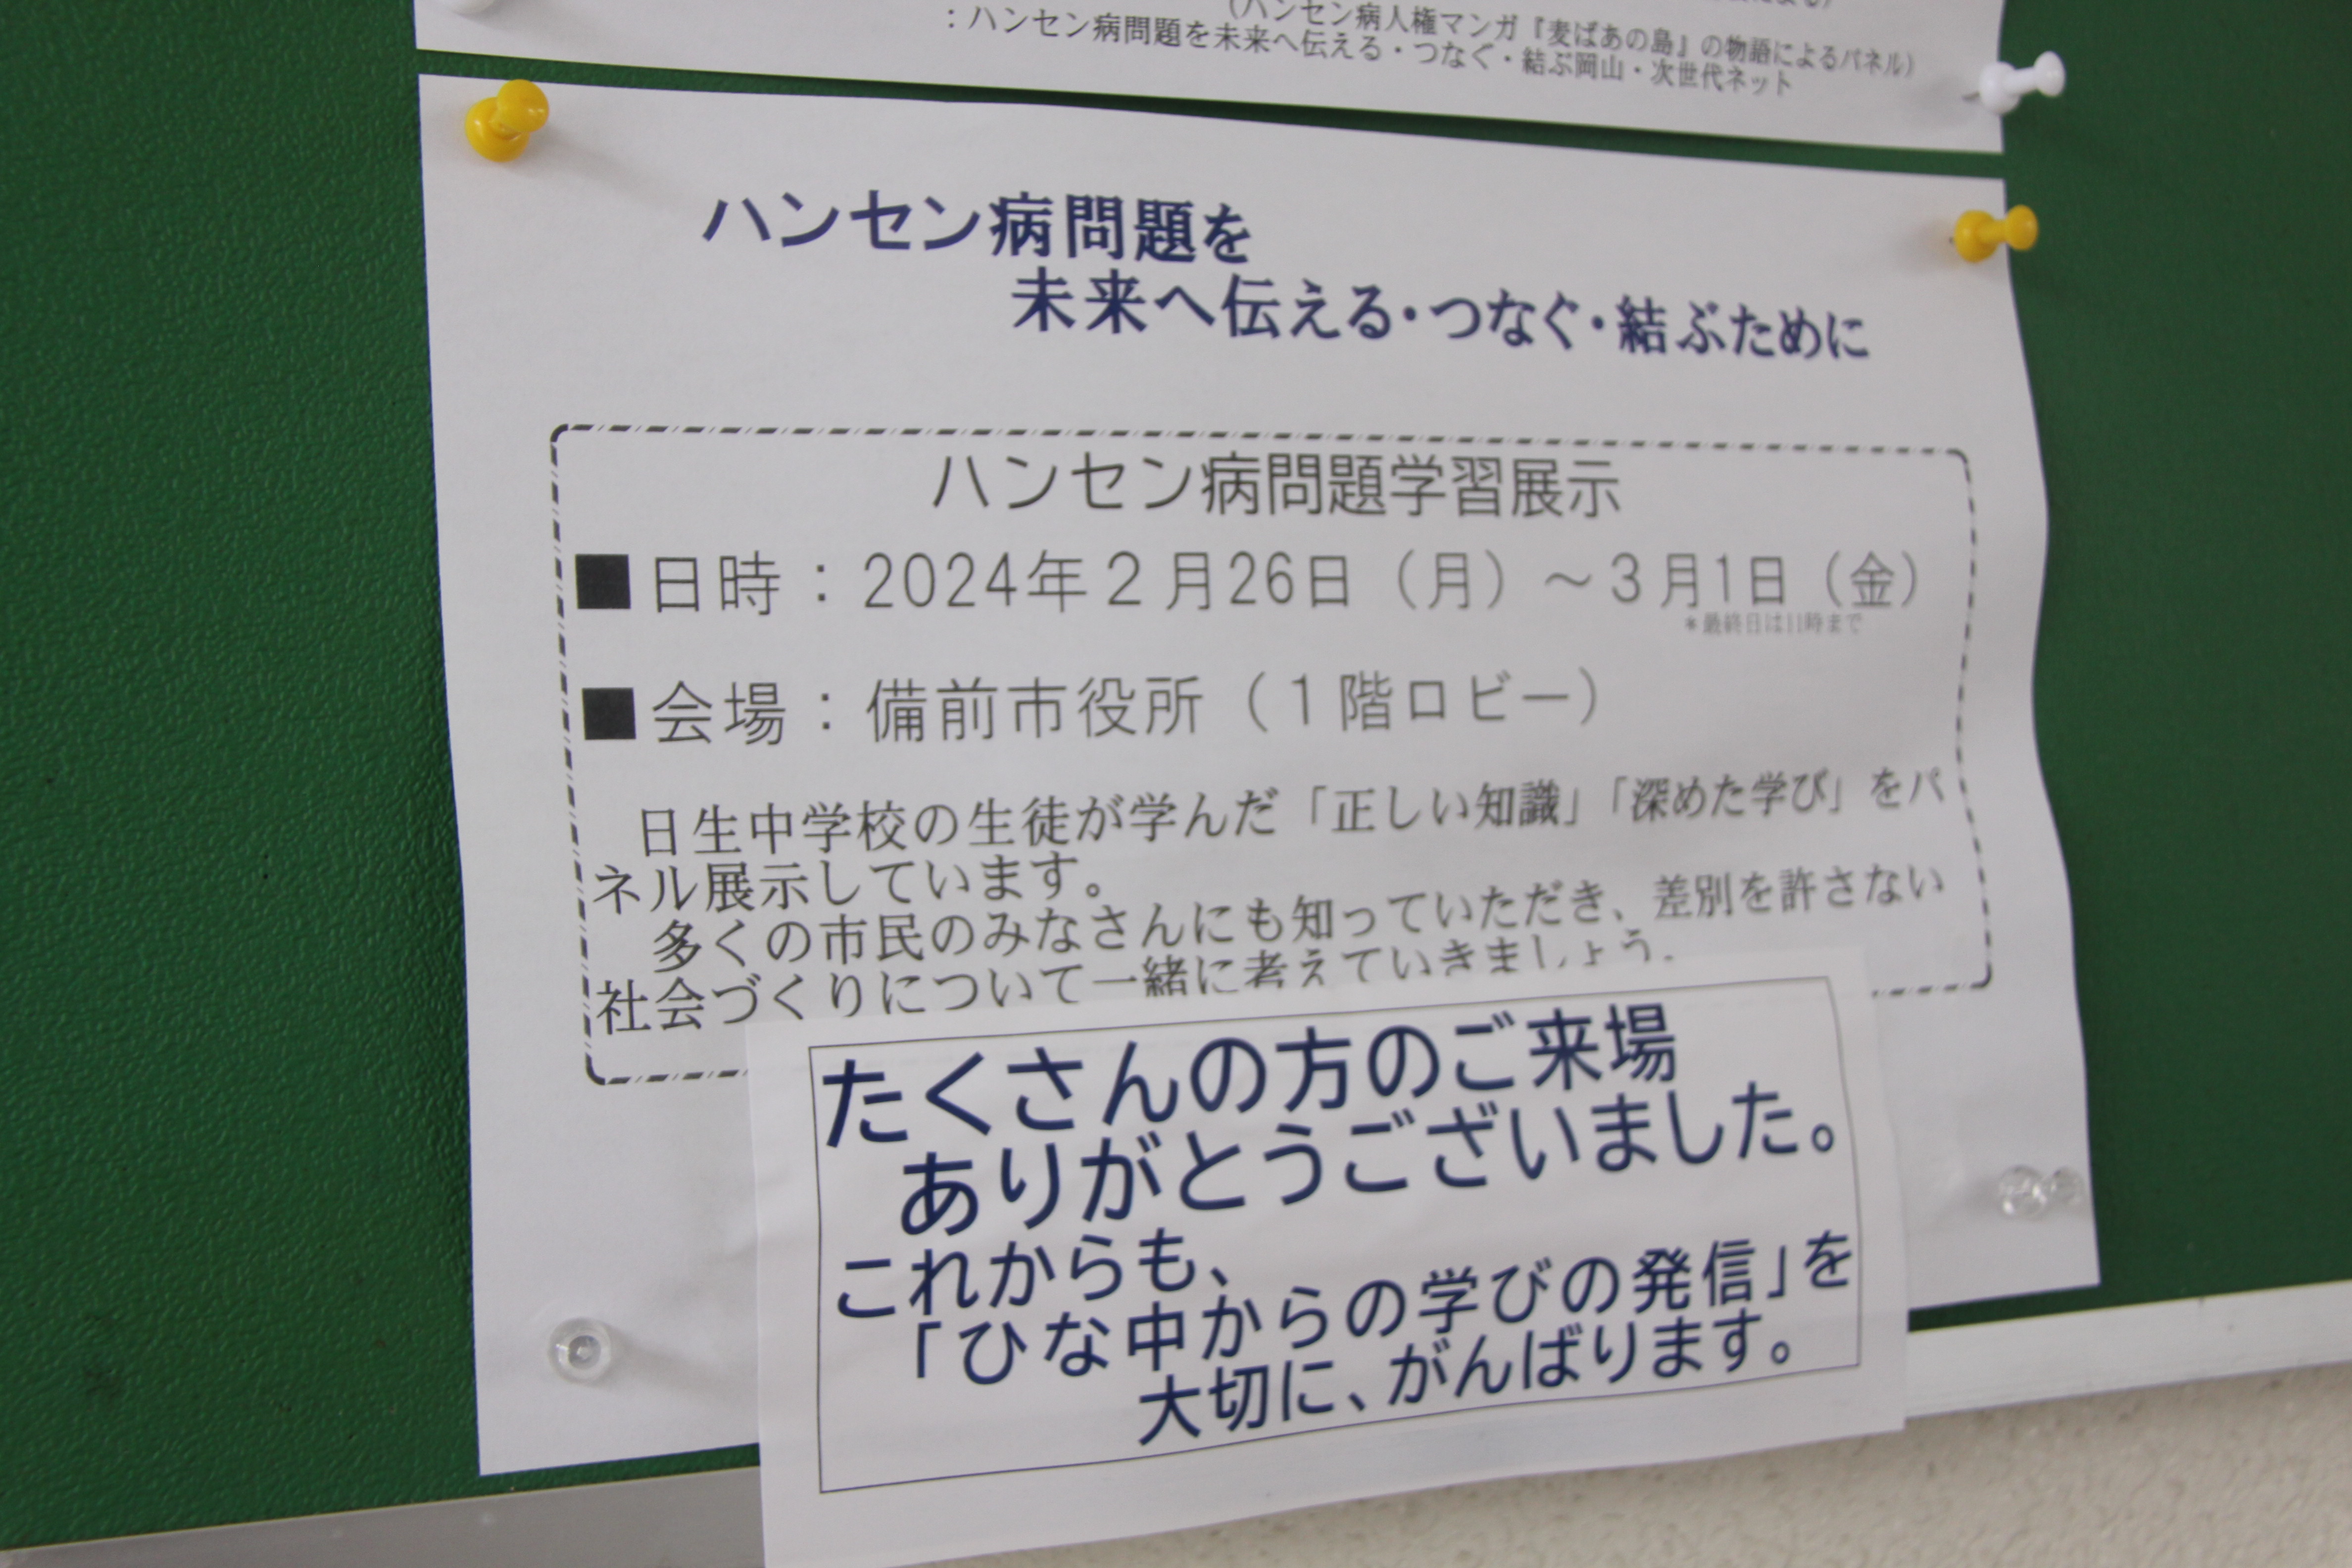 （ハンセン病人権マンガ『麦ばあの島』の物語によるパネル）
：ハンセン病問題を未来へ伝える・つなぐ・結ぶ岡山・次世代ネット
ハンセン病問題を
未来へ伝える・つなぐ・結ぶために
ハンセン病問題学習展示
■日時：2024年２月26日（月）～３月1日（金）
＊最終日は11時まで
■会場：備前市役所（１階ロビー）
日生中学校の生徒が学んだ「正しい知識」「深めた学び」をパ
ネル展示しています。
多くの市民のみなさんにも知っていただき、差別を許さない
社会づくりについて一緒に考えていきましょう。
たくさんの方のご来場
ありがとうございました。
これからも、
「ひな中からの学びの発信」を
大切に、がんばります。